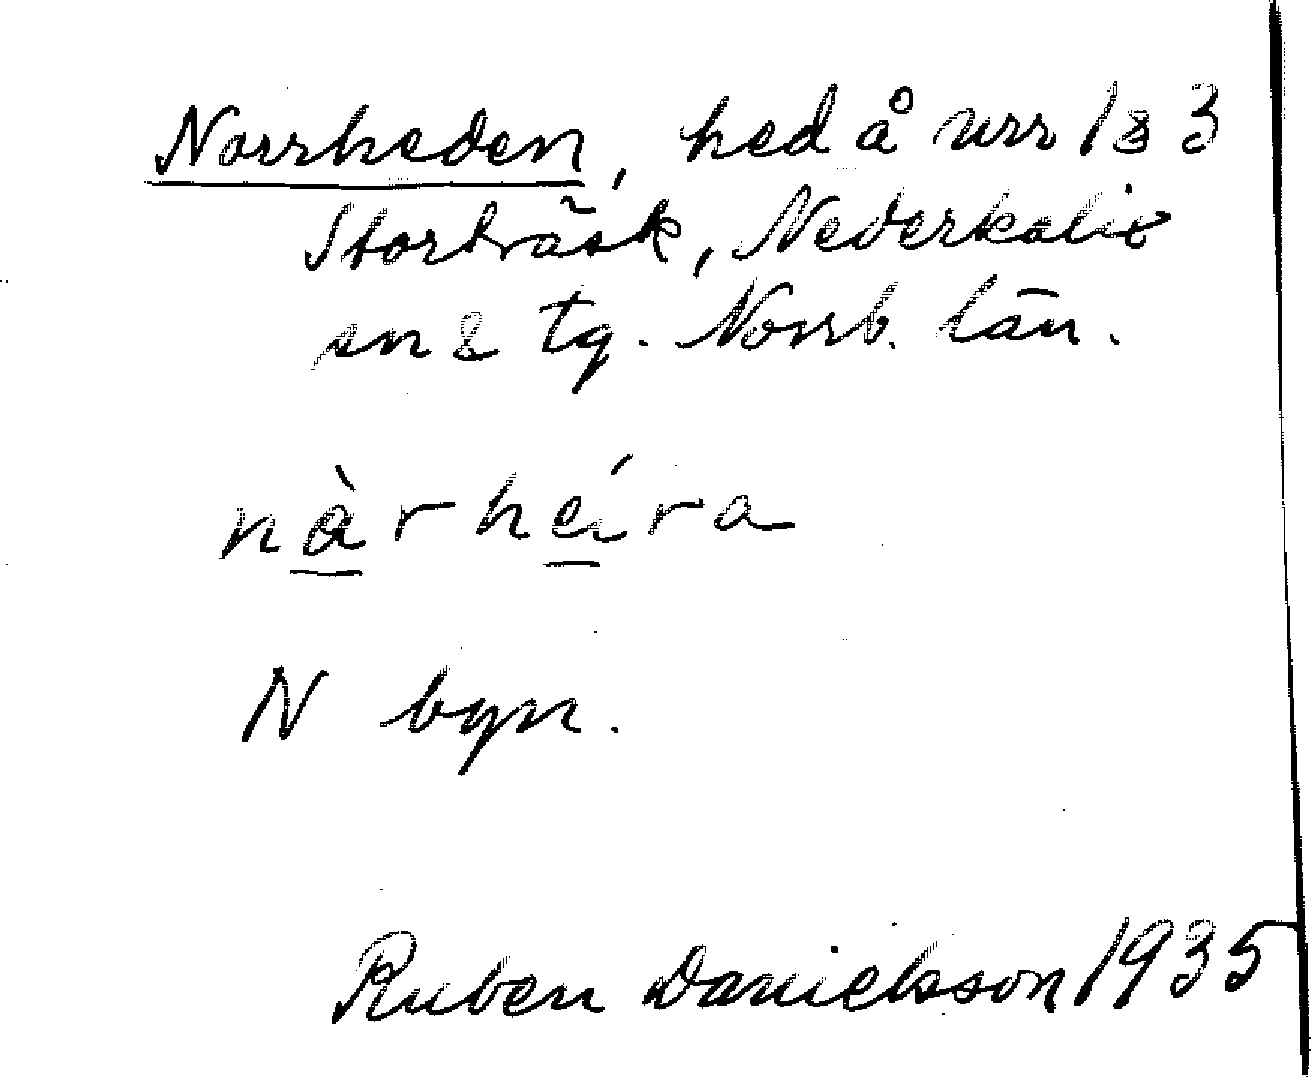 Norrheden, hed å urr 1 & 3
Storträsk, Nederkalix
sn & tg. Norrb. län.
nàrhéira
N byn.
Ruben Danielsson 1935